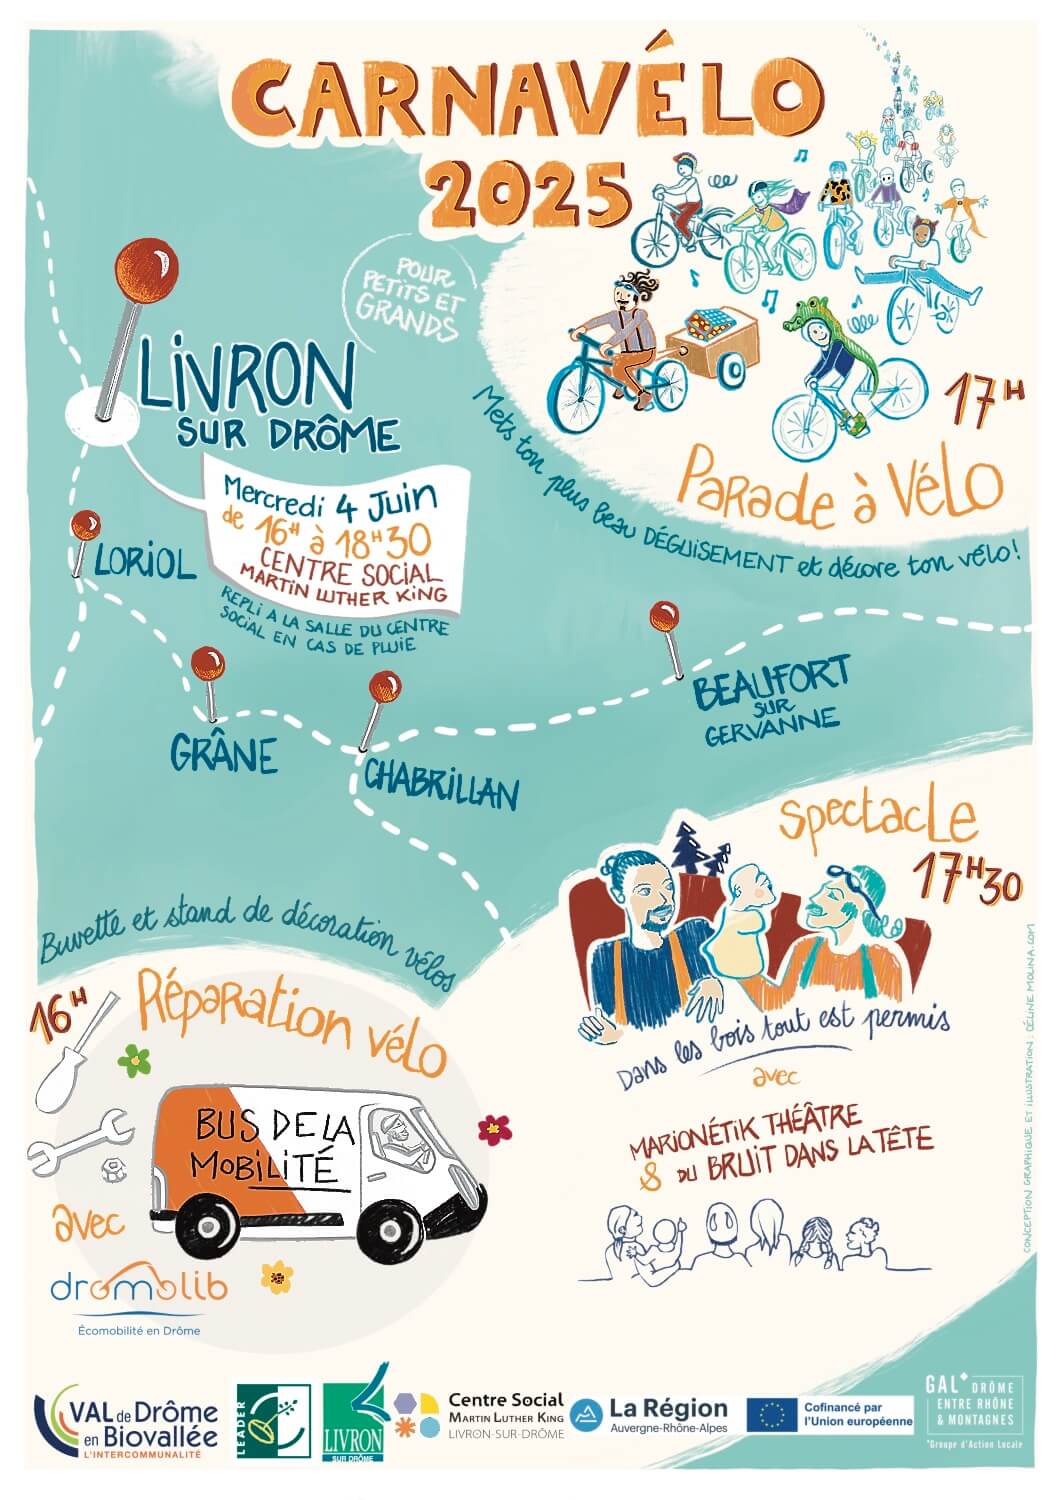 CARNAVÉLO
2025
POUR
PETITS ET
GRANDS
LIVRON
SUR DRÔME
Mercredi 4 Juin
de 16H à 18H30
CENTRE SOCIAL
MARTIN LUTHER KING
REPLI A LA SALLE DU CENTRE
SOCIAL EN CAS DE PLUIE
17H
Parade à Vélo
Mets ton plus beau DÉGUISEMENT et décore ton vélo!
LORIOL
GRÂNE
CHABRILLAN
BEAUFORT
SUR
GERVANNE
Spectacle
17H30
Dans les bois tout est permis
avec
MARIONÉTIK THÉÂTRE
& DU BRUIT DANS LA TÊTE
Buvette et stand de décoration vélos
16H
Réparation vélo
BUS DE LA
MOBILITÉ
avec
dromolib
Écomobilité en Drôme
CONCEPTION GRAPHIQUE ET ILLUSTRATION : CÉLINE MOLINA.COM
VAL de DRÔME
en Biovallée
L'INTERCOMMUNALITÉ
LEADER
LIVRON
SUR DRÔME
Centre Social
MARTIN LUTHER KING
LIVRON-SUR-DRÔME
La Région
Auvergne-Rhône-Alpes
Cofinancé par
l'Union européenne
GAL* DRÔME
ENTRE RHÔNE
& MONTAGNES
*Groupe d'Action Locale